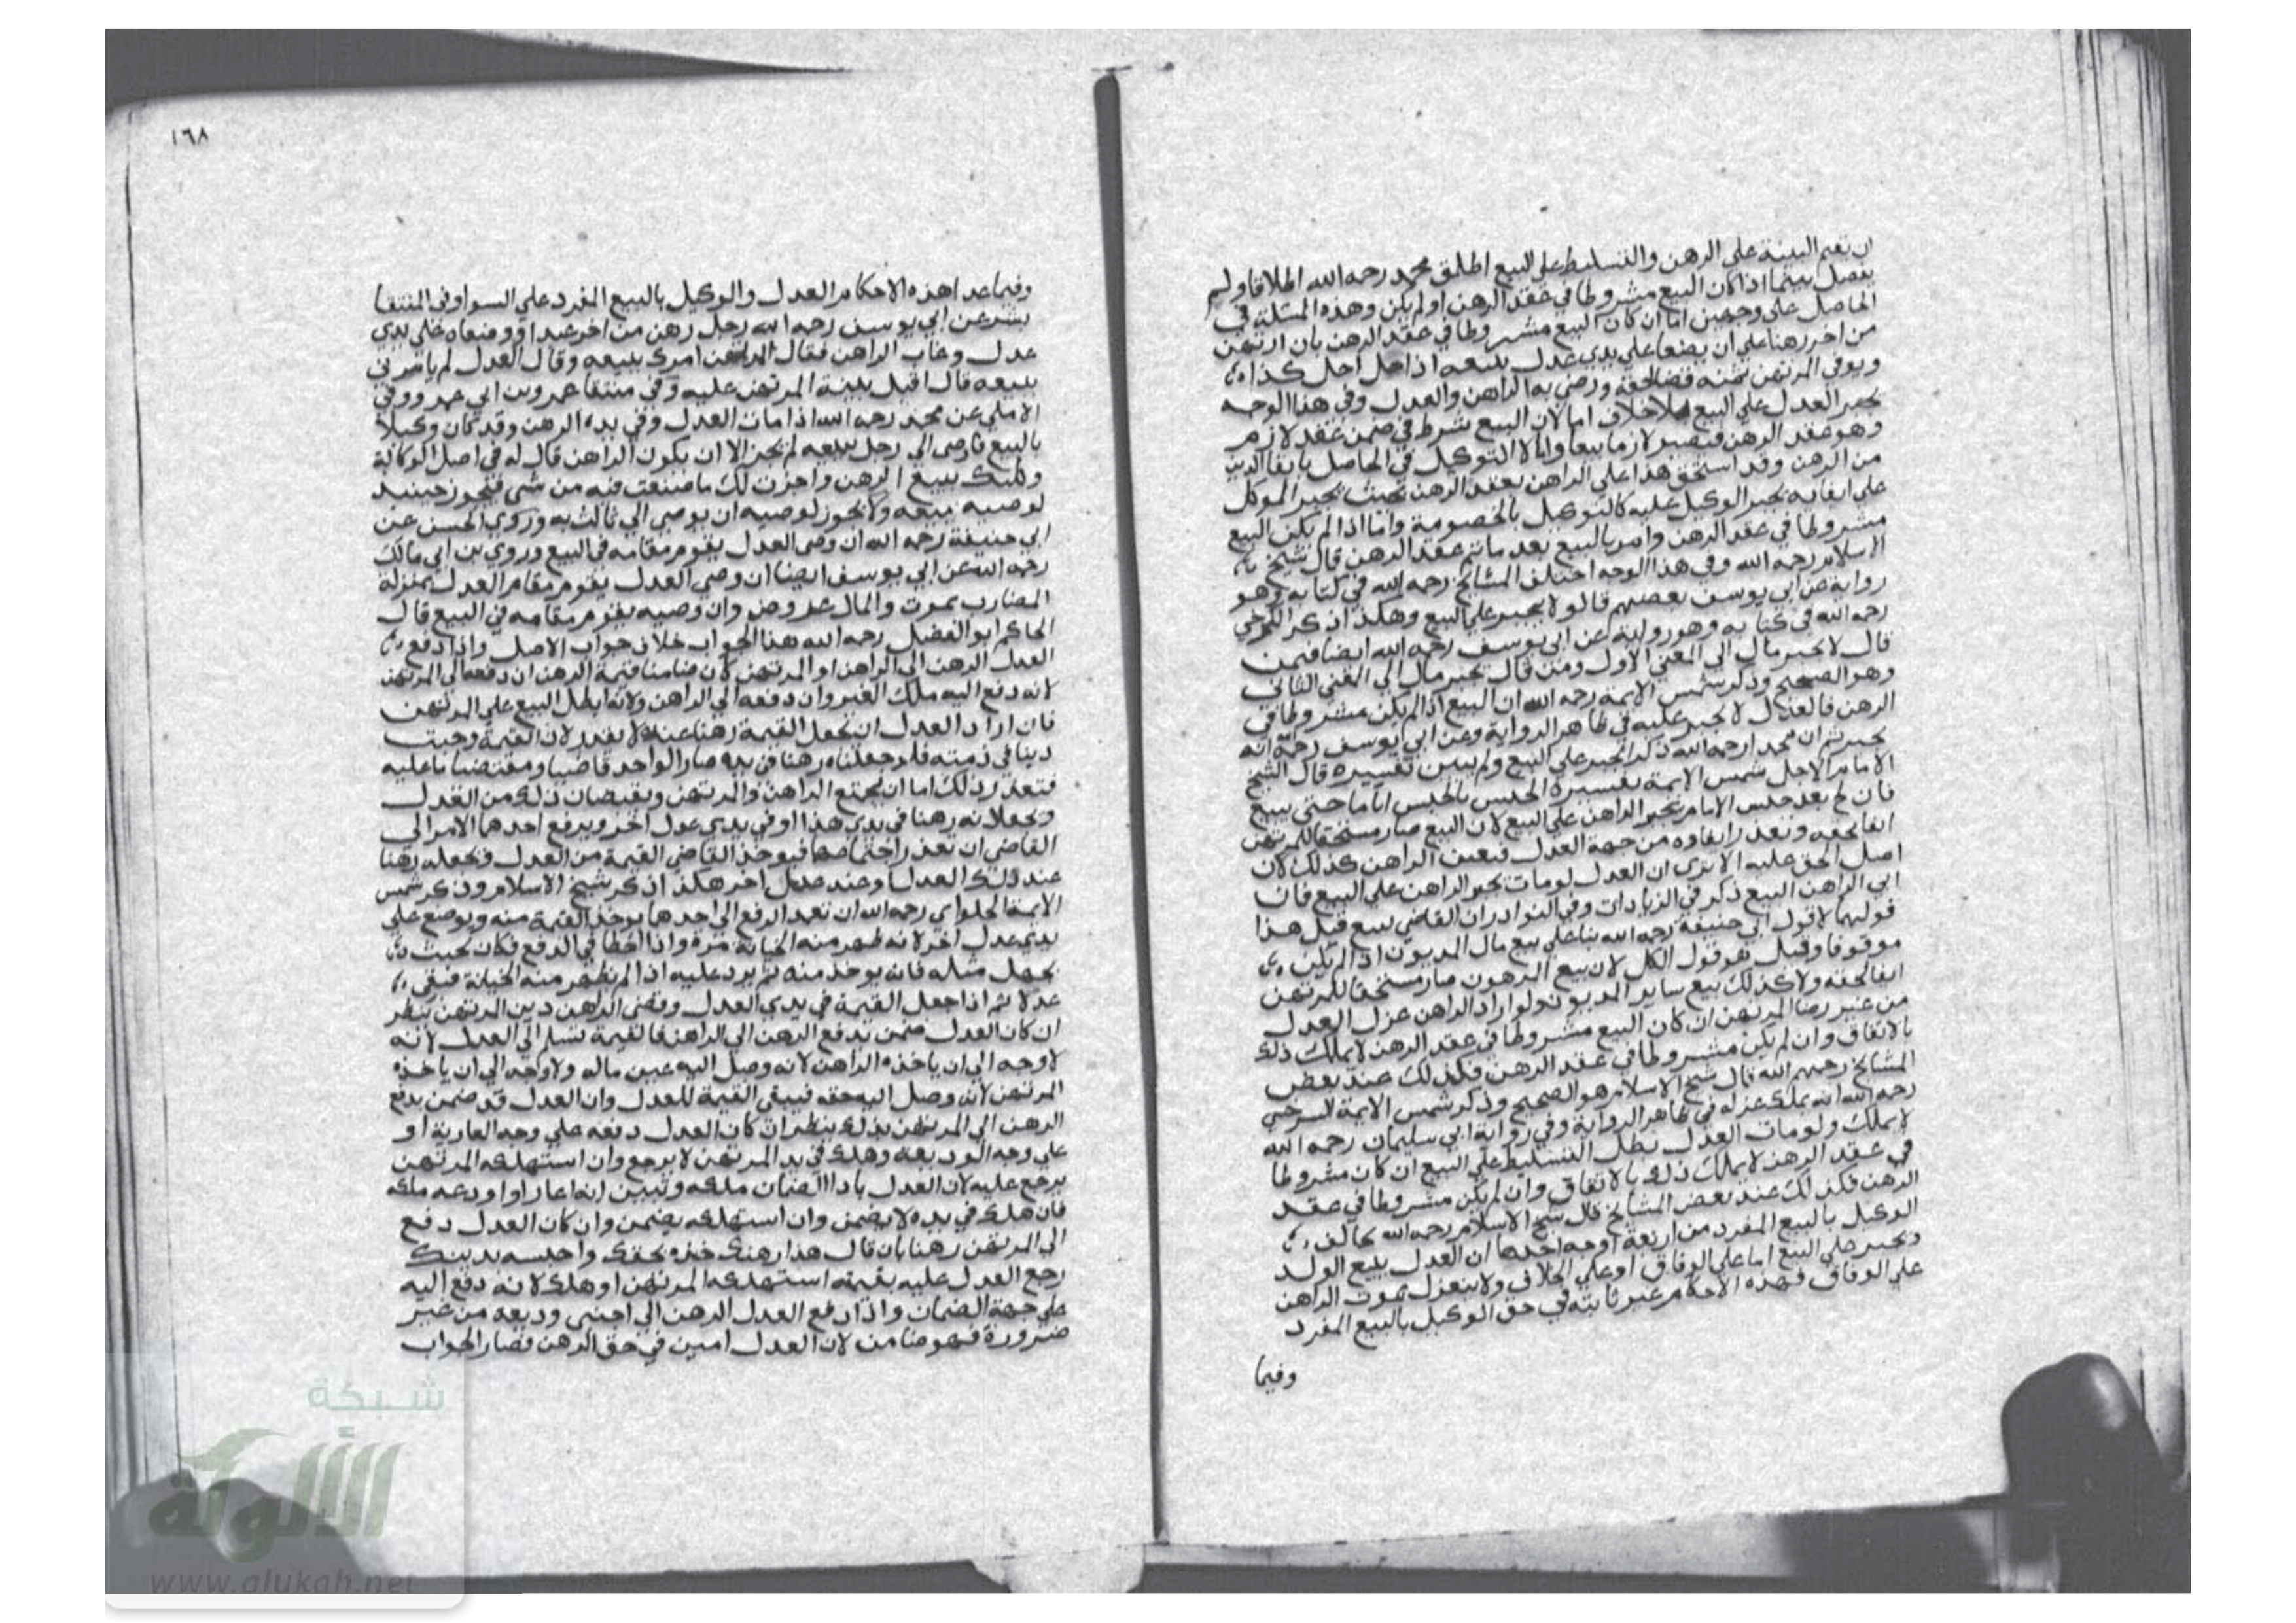 ان تقيم البينة علي الرهن والتسليط علي البيع اطلق محمد رحمه الله اطلاقا ولم
يفصل بينما اذا كان البيع مشروطا في عقد الرهن او لم يكن وهذه المسئلة في
الحاصل علي وجهين اما ان كان البيع مشروطا في عقد الرهن بان ارتهن
من اخر رهنا علي ان يضعا علي يدي عدل يبيعه اذا حل اجل كذا
ويوفي المرتهن ثمنه فضا لحقه ورضي به الراهن والعدل وفي هذا الوجه
يجبر العدل علي البيع بلا خلاف اما لان البيع شرط في ضمن عقد لازم
وهو عقد الرهن فيصير لازما تبعا واما لا التوكيل في الحاصل بايفا الدين
من الرهن وقد استحق هذا علي الراهن بعقد الرهن بحيث يجبر الموكل
علي ايفايه يجبر الوكيل عليه كالتوكيل بالخصومة واما اذا لم يكن البيع
مشروطا في عقد الرهن وامر بالبيع بعد ما تم عقد الرهن قال شيخ
الاسلام رحمه الله وفي هذا الوجه اختلف المشايخ رحمه الله في كتابه وهو
رواية عن ابي يوسف بعضهم قالو لا يجبر علي البيع وهكذا ذكر الكرخي
رحمه الله في كتابه وهو رواية عن ابي يوسف رحمه الله ايضا فمن
قال لا يجبر مال الي المعني الاول ومن قال يجبر مال الي المعني الثاني
وهو الصحيح وذكر شمس الايمة رحمه الله ان البيع اذا لم يكن مشروطا في
الرهن فالعدل لا يجبر عليه في ظاهر الرواية وعن ابي يوسف رحمه الله انه
يجبر ثم ان محمدا رحمه الله ذكر الجبر علي البيع ولم يبين تفسيره قال الشيخ
الامام الاجل شمس الايمة تفسيره الحبس بالحبس اياما حتي يبيع
فان لج بعد حبس الامام يجبر الراهن علي البيع لان البيع صار مستحقا للمرتهن
ايفا لحقه وتعذر ايفاوه من جهة العدل فيعين الراهن كذلك لان
اصل الحق عليه الا تري ان العدل لو مات يجبر الراهن علي البيع فان
ابي الراهن البيع ذكر في الزيادات وفي النوادر ان القاضي يبيع قيل هذا
قولهما لا قول ابي حنيفة رحمه الله بنا علي بيع مال المديون اذا لم يكن
موقوفا وقيل هو قول الكل لان بيع المرهون صار مستحقا للمرتهن
ايفا لحقه ولا كذلك بيع ساير المديون ولو اراد الراهن عزل العدل
من غير رضا المرتهن ان كان البيع مشروطا في عقد الرهن لا يملك ذلك
بالاتفاق وان لم يكن مشروطا في عقد الرهن فكذلك عند بعض
المشايخ رحمهم الله قال شيخ الاسلام هو الصحيح وذكر شمس الايمة السرخسي
رحمه الله انه يملك عزله في ظاهر الرواية وفي رواية ابي سليمان رحمه الله
لا يملك ولو مات العدل بطل التسليط علي البيع ان كان مشروطا
في عقد الرهن لا يملك ذلك بالاتفاق وان لم يكن مشروطا في عقد
الرهن فكذلك عند بعض المشايخ قال شيخ الاسلام رحمه الله يخالف
الوكيل بالبيع المفرد من اربعة اوجه احدها ان العدل يبيع الولد
ويجبر علي البيع اما علي الوفاق او علي الخلاف ولا ينعزل بموت الراهن
علي الوفاق فهذه الاحكام غير ثابته في حق الوكيل بالبيع المفرد
وفيما
١٦٨
وفيما عدا هذه الاحكام العدل والوكيل بالبيع المفرد علي السوا وفي المنتقا
بشر عن ابي يوسف رحمه الله رجل رهن من اخر عبدا ووضعاه علي يدي
عدل وغاب الراهن فقال المرتهن امرك ببيعه وقال العدل لم يامرني
ببيعه قال اقبل بينة المرتهن عليه وفي منتقا عمرو بن ابي عمرو وفي
الاملي عن محمد رحمه الله اذا مات العدل وفي يده الرهن وقد كان وكيلا
بالبيع فاوصي الي رجل ببيعه لم يجز الا ان يكون الراهن قال له في اصل الوكالة
وكلتك ببيع الرهن واجزت لك ما صنعت فيه من شي فيجوز حينيد
لوصيه بيعه ولا يجوز لوصيه ان يوصي الي ثالث به وروي الحسن عن
ابي حنيفة رحمه الله ان وصي العدل يقوم مقامه في البيع وروي بن ابي مالك
رحمه الله عن ابي يوسف ايضا ان وصي العدل يقوم مقام العدل بمنزلة
المضارب يموت والمال عروض وان وصيه يقوم مقامه في البيع قال
الحاكم ابو الفضل رحمه الله هذا الجواب خلاف جواب الاصل واذا دفع
العدل الرهن الي الراهن او المرتهن كان ضامنا قيمة الرهن ان دفعه الي المرتهن
لانه دفع اليه ملك الغير وان دفعه الي الراهن ولانه ابطل البيع علي المرتهن
فان اراد العدل ان يجعل القيمة رهنا عنده لا يقدر لان القيمة وجبت
دينا في ذمته فلو جعلناه رهنا في يده صار الواحد قاضيا ومقتضيا ما عليه
فتعذر ذلك اما ان يجتمع الراهن والمرتهن ويقبضان ذلك من العدل
ويجعلانه رهنا في يدي هذا او في يدي عدل اخر ويرفع احدهما الامر الي
القاضي ان تعذر اجتماعهما فيوخذ القاضي القيمة من العدل ويجعله رهنا
عند ذلك العدل او عند عدل اخر هكذا ذكر شيخ الاسلام وذكر شمس
الايمة الحلواي رحمه الله ان تعمد الدفع الي احدهما يوخذ القيمة منه ويوضع علي
يدي عدل اخر لانه ظهر منه الخيانة مرة واذا اخطا في الدفع فكان بحيث
يجهل مثله فانه يوخذ منه ثم يرد عليه اذا لم تظهر منه الخيانة فبقي
عدلا ثم اذا جعل القيمة في يدي العدل وقضي الراهن دين المرتهن ينظر
ان كان العدل ضمن بدفع الرهن الي الراهن فالقيمة تسلم الي العدل لانه
لا وجه الي ان ياخذه الراهن لانه وصل اليه عين ماله ولا وجه الي ان ياخذه
المرتهن لانه وصل اليه حقه فيبقي القيمة للعدل وان العدل قد ضمن بدفع
الرهن الي المرتهن بذلك ينظر ان كان العدل دفعه علي وجه العارية او
علي وجه الوديعة وهلك في يد المرتهن لا يرجع وان استهلكه المرتهن
يرجع عليه لان العدل باداالضمان ملكه وتبين انه اعار او اودعه ملكه
فان هلك في يده لا يضمن وان استهلكه يضمن وان كان العدل دفع
الي المرتهن رهنا بان قال هذا رهنك خذه بحقك واحبسه بدينك
رجع العدل عليه بقيمته استهلكه المرتهن او هلك لانه دفع اليه
علي جهة الضمان واذا دفع العدل الرهن الي اجنبي وديعة من غير
ضرورة فهو ضامن لان العدل امين في حق الرهن فصار الجواب
شبكة
الألوكة
www.alukah.net